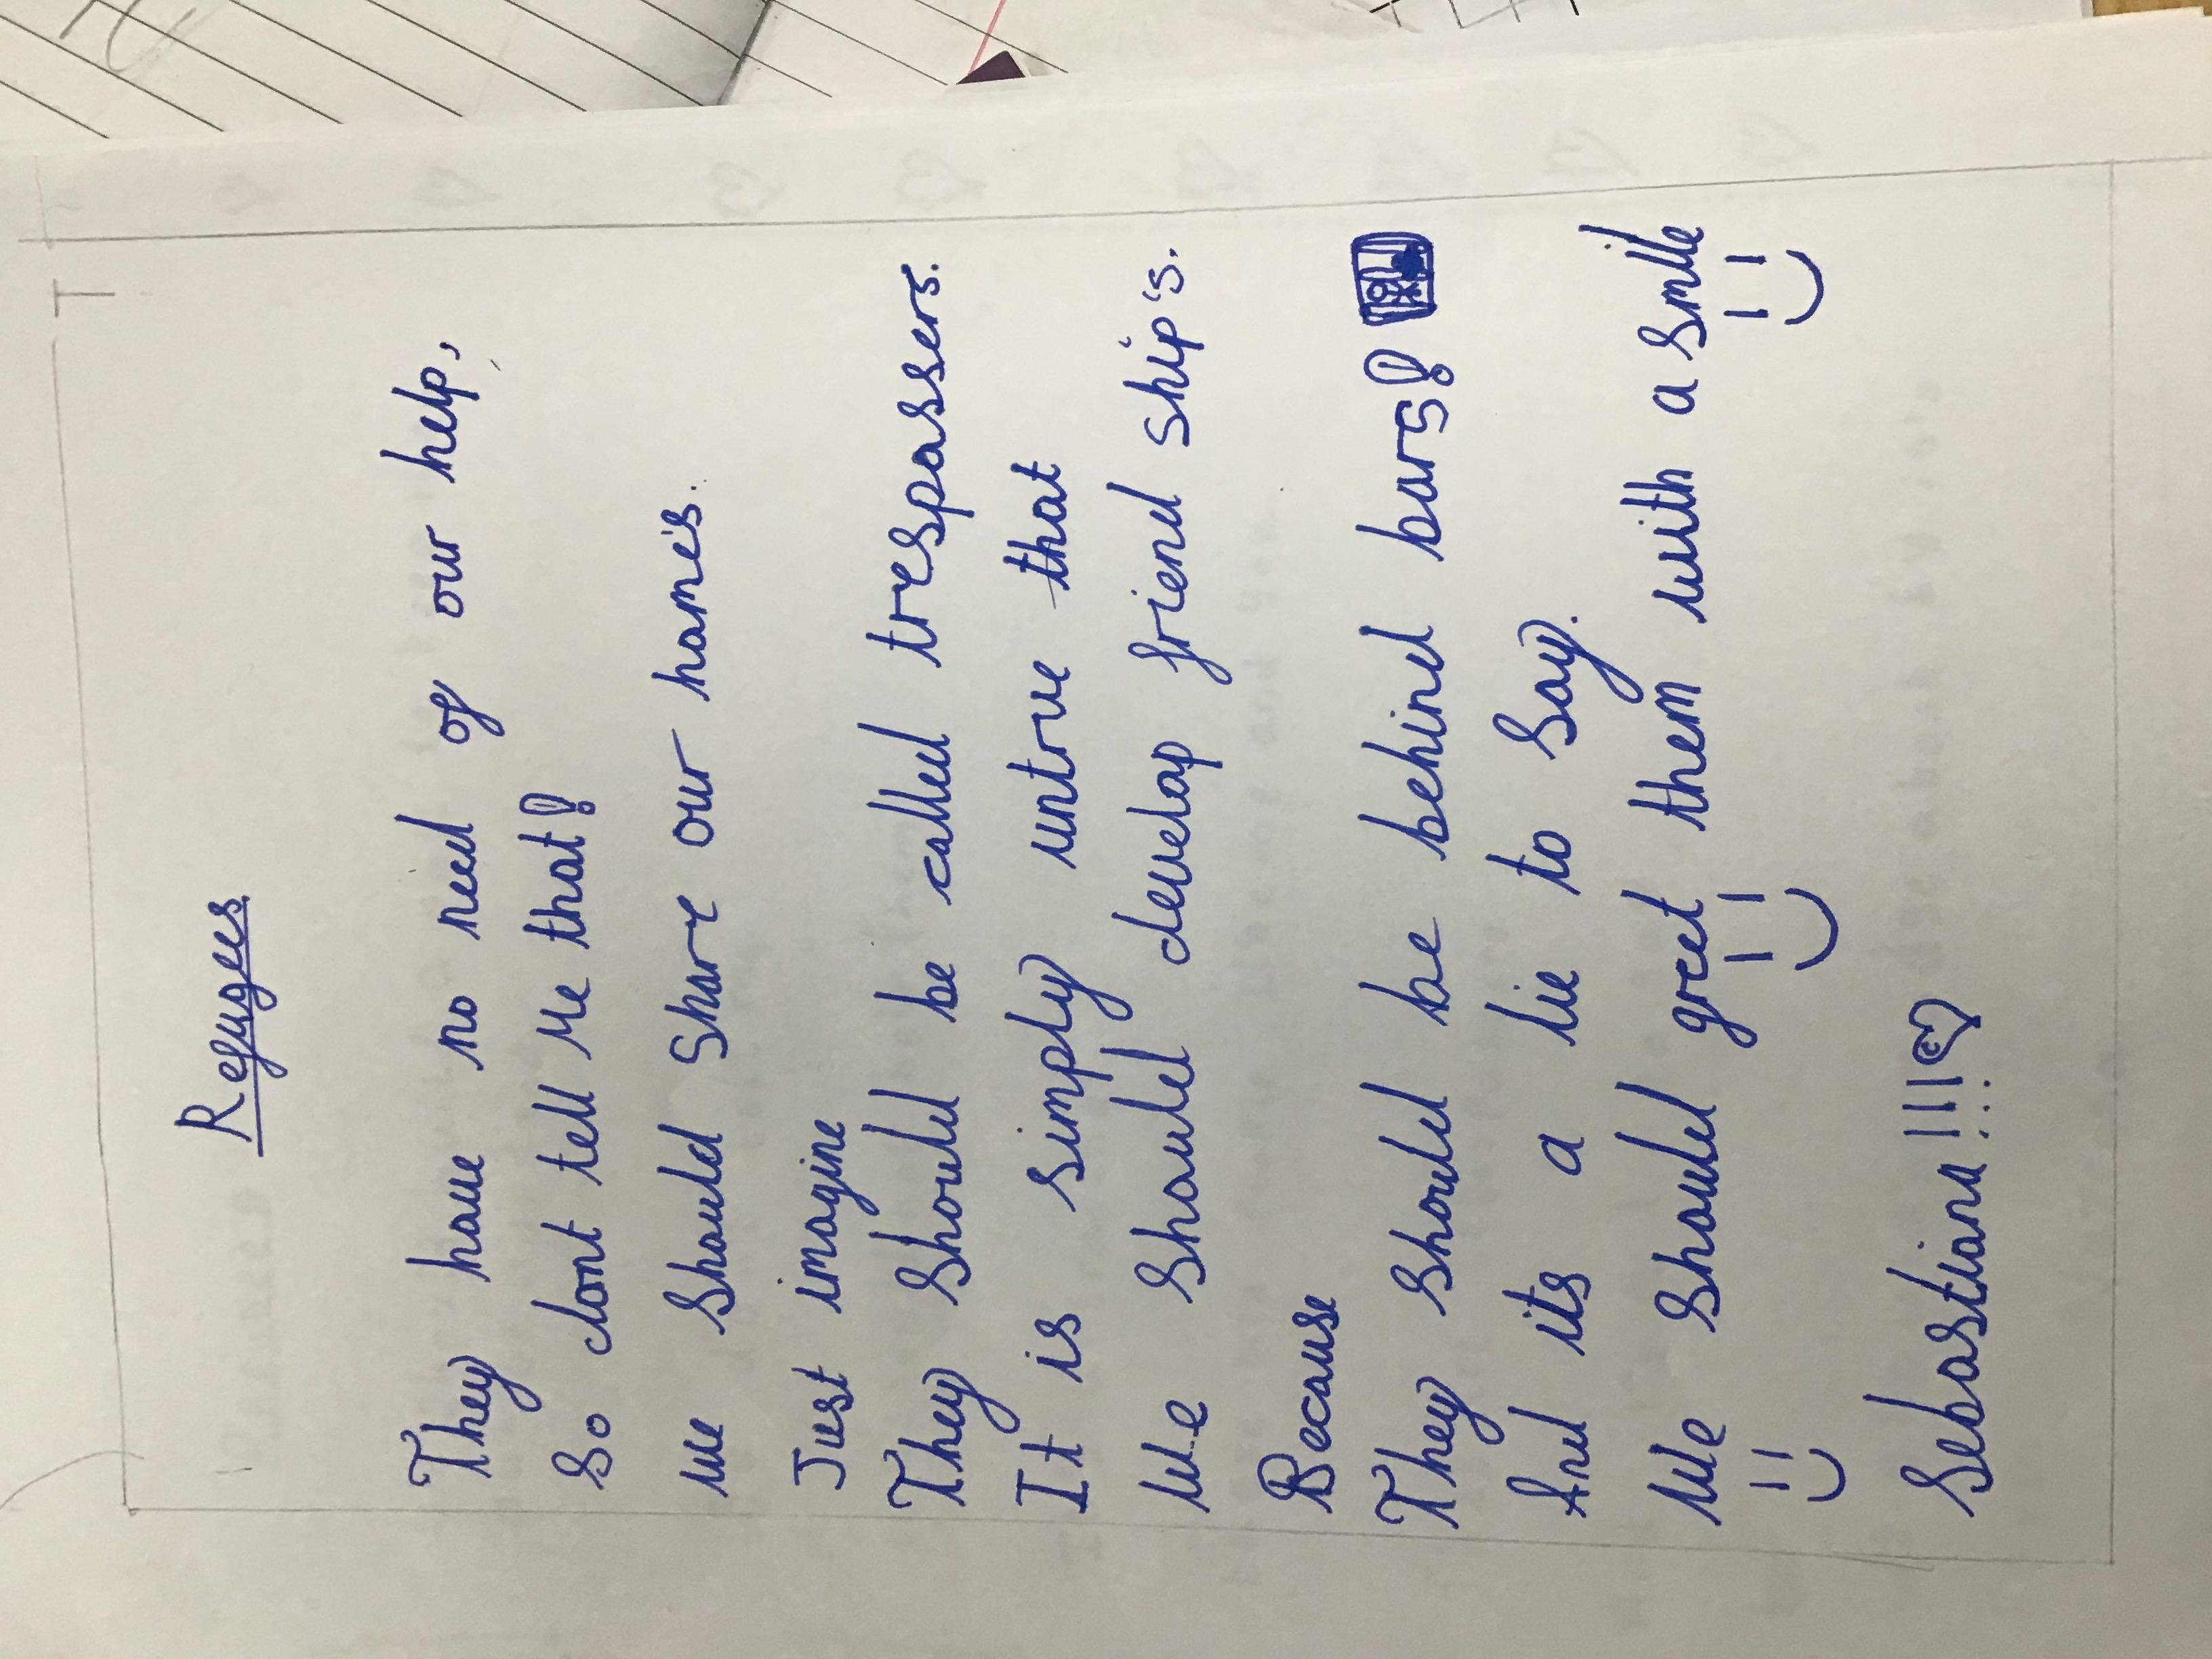 Refuges
They have no need of our help,
So dont tell me that!
We should share our home's.
Just imagine
They should be called trespassers.
It is simply untrue that
We should develop friend ship's.
Because
They should be behind bars!
And its a lie to say.
We should greet them with a smile
Sebastian!!!